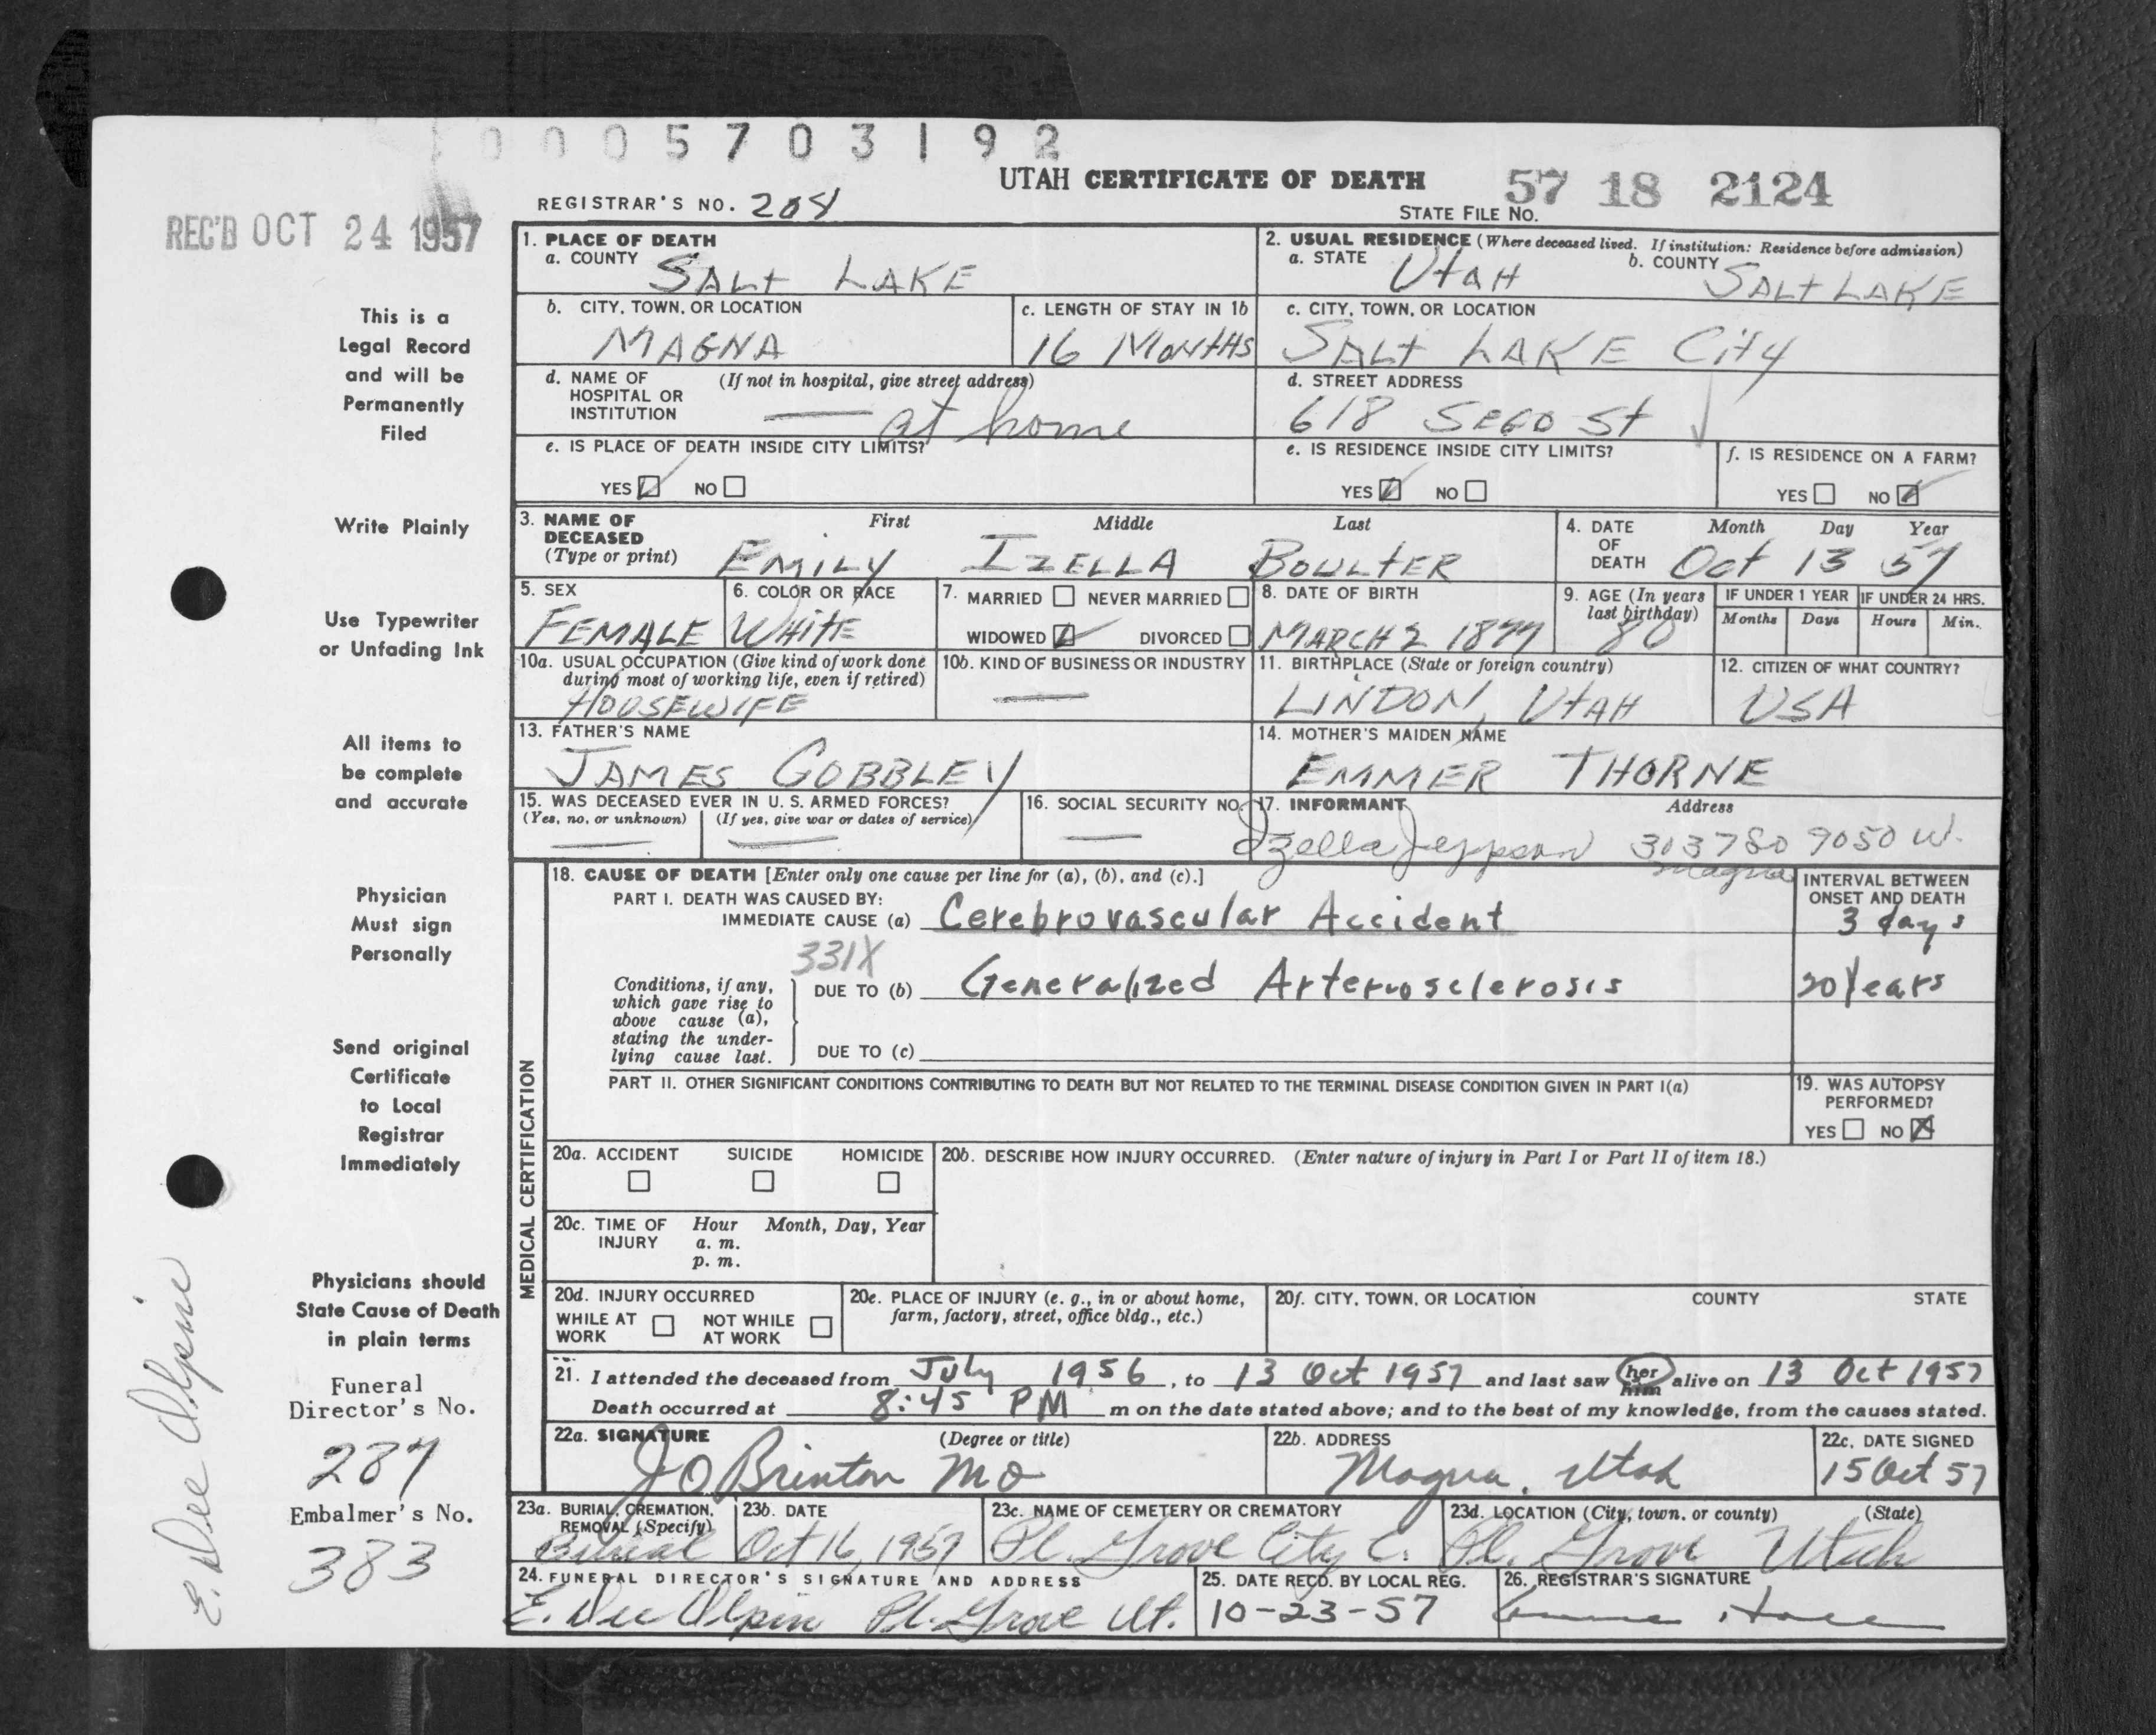 0005703192
UTAH CERTIFICATE OF DEATH
57 18 2124
REGISTRAR'S NO. 208
STATE FILE NO.
REC'D OCT 24 1957
1. PLACE OF DEATH
a. COUNTY SALT LAKE
2. USUAL RESIDENCE (Where deceased lived. If institution: Residence before admission)
a. STATE UTAH b. COUNTY SALT LAKE
b. CITY, TOWN, OR LOCATION MAGNA
c. LENGTH OF STAY IN 1b 16 MONTHS
c. CITY, TOWN, OR LOCATION SALT LAKE CITY
d. NAME OF HOSPITAL OR INSTITUTION (If not in hospital, give street address) — at home
d. STREET ADDRESS 618 SEGO ST
e. IS PLACE OF DEATH INSIDE CITY LIMITS?
YES NO
e. IS RESIDENCE INSIDE CITY LIMITS?
YES NO
f. IS RESIDENCE ON A FARM?
YES NO
3. NAME OF DECEASED (Type or print)
First Middle Last
EMILY IZELLA BOULTER
4. DATE OF DEATH
Month Day Year
Oct 13 57
5. SEX FEMALE
6. COLOR OR RACE WHITE
7. MARRIED NEVER MARRIED
WIDOWED DIVORCED
8. DATE OF BIRTH MARCH 2 1877
9. AGE (In years last birthday) 80
IF UNDER 1 YEAR Months Days
IF UNDER 24 HRS. Hours Min.
10a. USUAL OCCUPATION (Give kind of work done during most of working life, even if retired)
HOUSEWIFE
10b. KIND OF BUSINESS OR INDUSTRY
—
11. BIRTHPLACE (State or foreign country)
LINDON, UTAH
12. CITIZEN OF WHAT COUNTRY?
USA
13. FATHER'S NAME
JAMES GOBBLEY
14. MOTHER'S MAIDEN NAME
EMMER THORNE
15. WAS DECEASED EVER IN U. S. ARMED FORCES?
(Yes, no, or unknown) (If yes, give war or dates of service)
— —
16. SOCIAL SECURITY NO.
—
17. INFORMANT Address
Izella Jeppson 9050 W.
Magna
MEDICAL CERTIFICATION
18. CAUSE OF DEATH [Enter only one cause per line for (a), (b), and (c).]
INTERVAL BETWEEN ONSET AND DEATH
PART I. DEATH WAS CAUSED BY:
IMMEDIATE CAUSE (a) Cerebrovascular Accident 3 days
331X
Conditions, if any, which gave rise to above cause (a), stating the underlying cause last.
DUE TO (b) Generalized Arteriosclerosis 20 Years
DUE TO (c)
PART II. OTHER SIGNIFICANT CONDITIONS CONTRIBUTING TO DEATH BUT NOT RELATED TO THE TERMINAL DISEASE CONDITION GIVEN IN PART I(a)
19. WAS AUTOPSY PERFORMED?
YES NO
20a. ACCIDENT SUICIDE HOMICIDE
20b. DESCRIBE HOW INJURY OCCURRED. (Enter nature of injury in Part I or Part II of item 18.)
20c. TIME OF INJURY Hour Month, Day, Year
a. m.
p. m.
20d. INJURY OCCURRED
WHILE AT WORK NOT WHILE AT WORK
20e. PLACE OF INJURY (e. g., in or about home, farm, factory, street, office bldg., etc.)
20f. CITY, TOWN, OR LOCATION COUNTY STATE
21. I attended the deceased from July 1956, to 13 Oct 1957 and last saw her him alive on 13 Oct 1957
Death occurred at 8:45 PM m on the date stated above; and to the best of my knowledge, from the causes stated.
22a. SIGNATURE (Degree or title)
JO Brinton MD
22b. ADDRESS
Magna, Utah
22c. DATE SIGNED
15 Oct 57
23a. BURIAL, CREMATION, REMOVAL (Specify)
Burial
23b. DATE
Oct 16, 1957
23c. NAME OF CEMETERY OR CREMATORY
Pl. Grove City C.
23d. LOCATION (City, town, or county) (State)
Pl. Grove Utah
24. FUNERAL DIRECTOR'S SIGNATURE AND ADDRESS
E. Dee Olpin Pl. Grove Ut.
25. DATE RECD. BY LOCAL REG.
10-23-57
26. REGISTRAR'S SIGNATURE
This is a
Legal Record
and will be
Permanently
Filed
Write Plainly
Use Typewriter
or Unfading Ink
All items to
be complete
and accurate
Physician
Must sign
Personally
Send original
Certificate
to Local
Registrar
Immediately
Physicians should
State Cause of Death
in plain terms
Funeral
Director's No.
287
Embalmer's No.
383
E. Dee Olpine